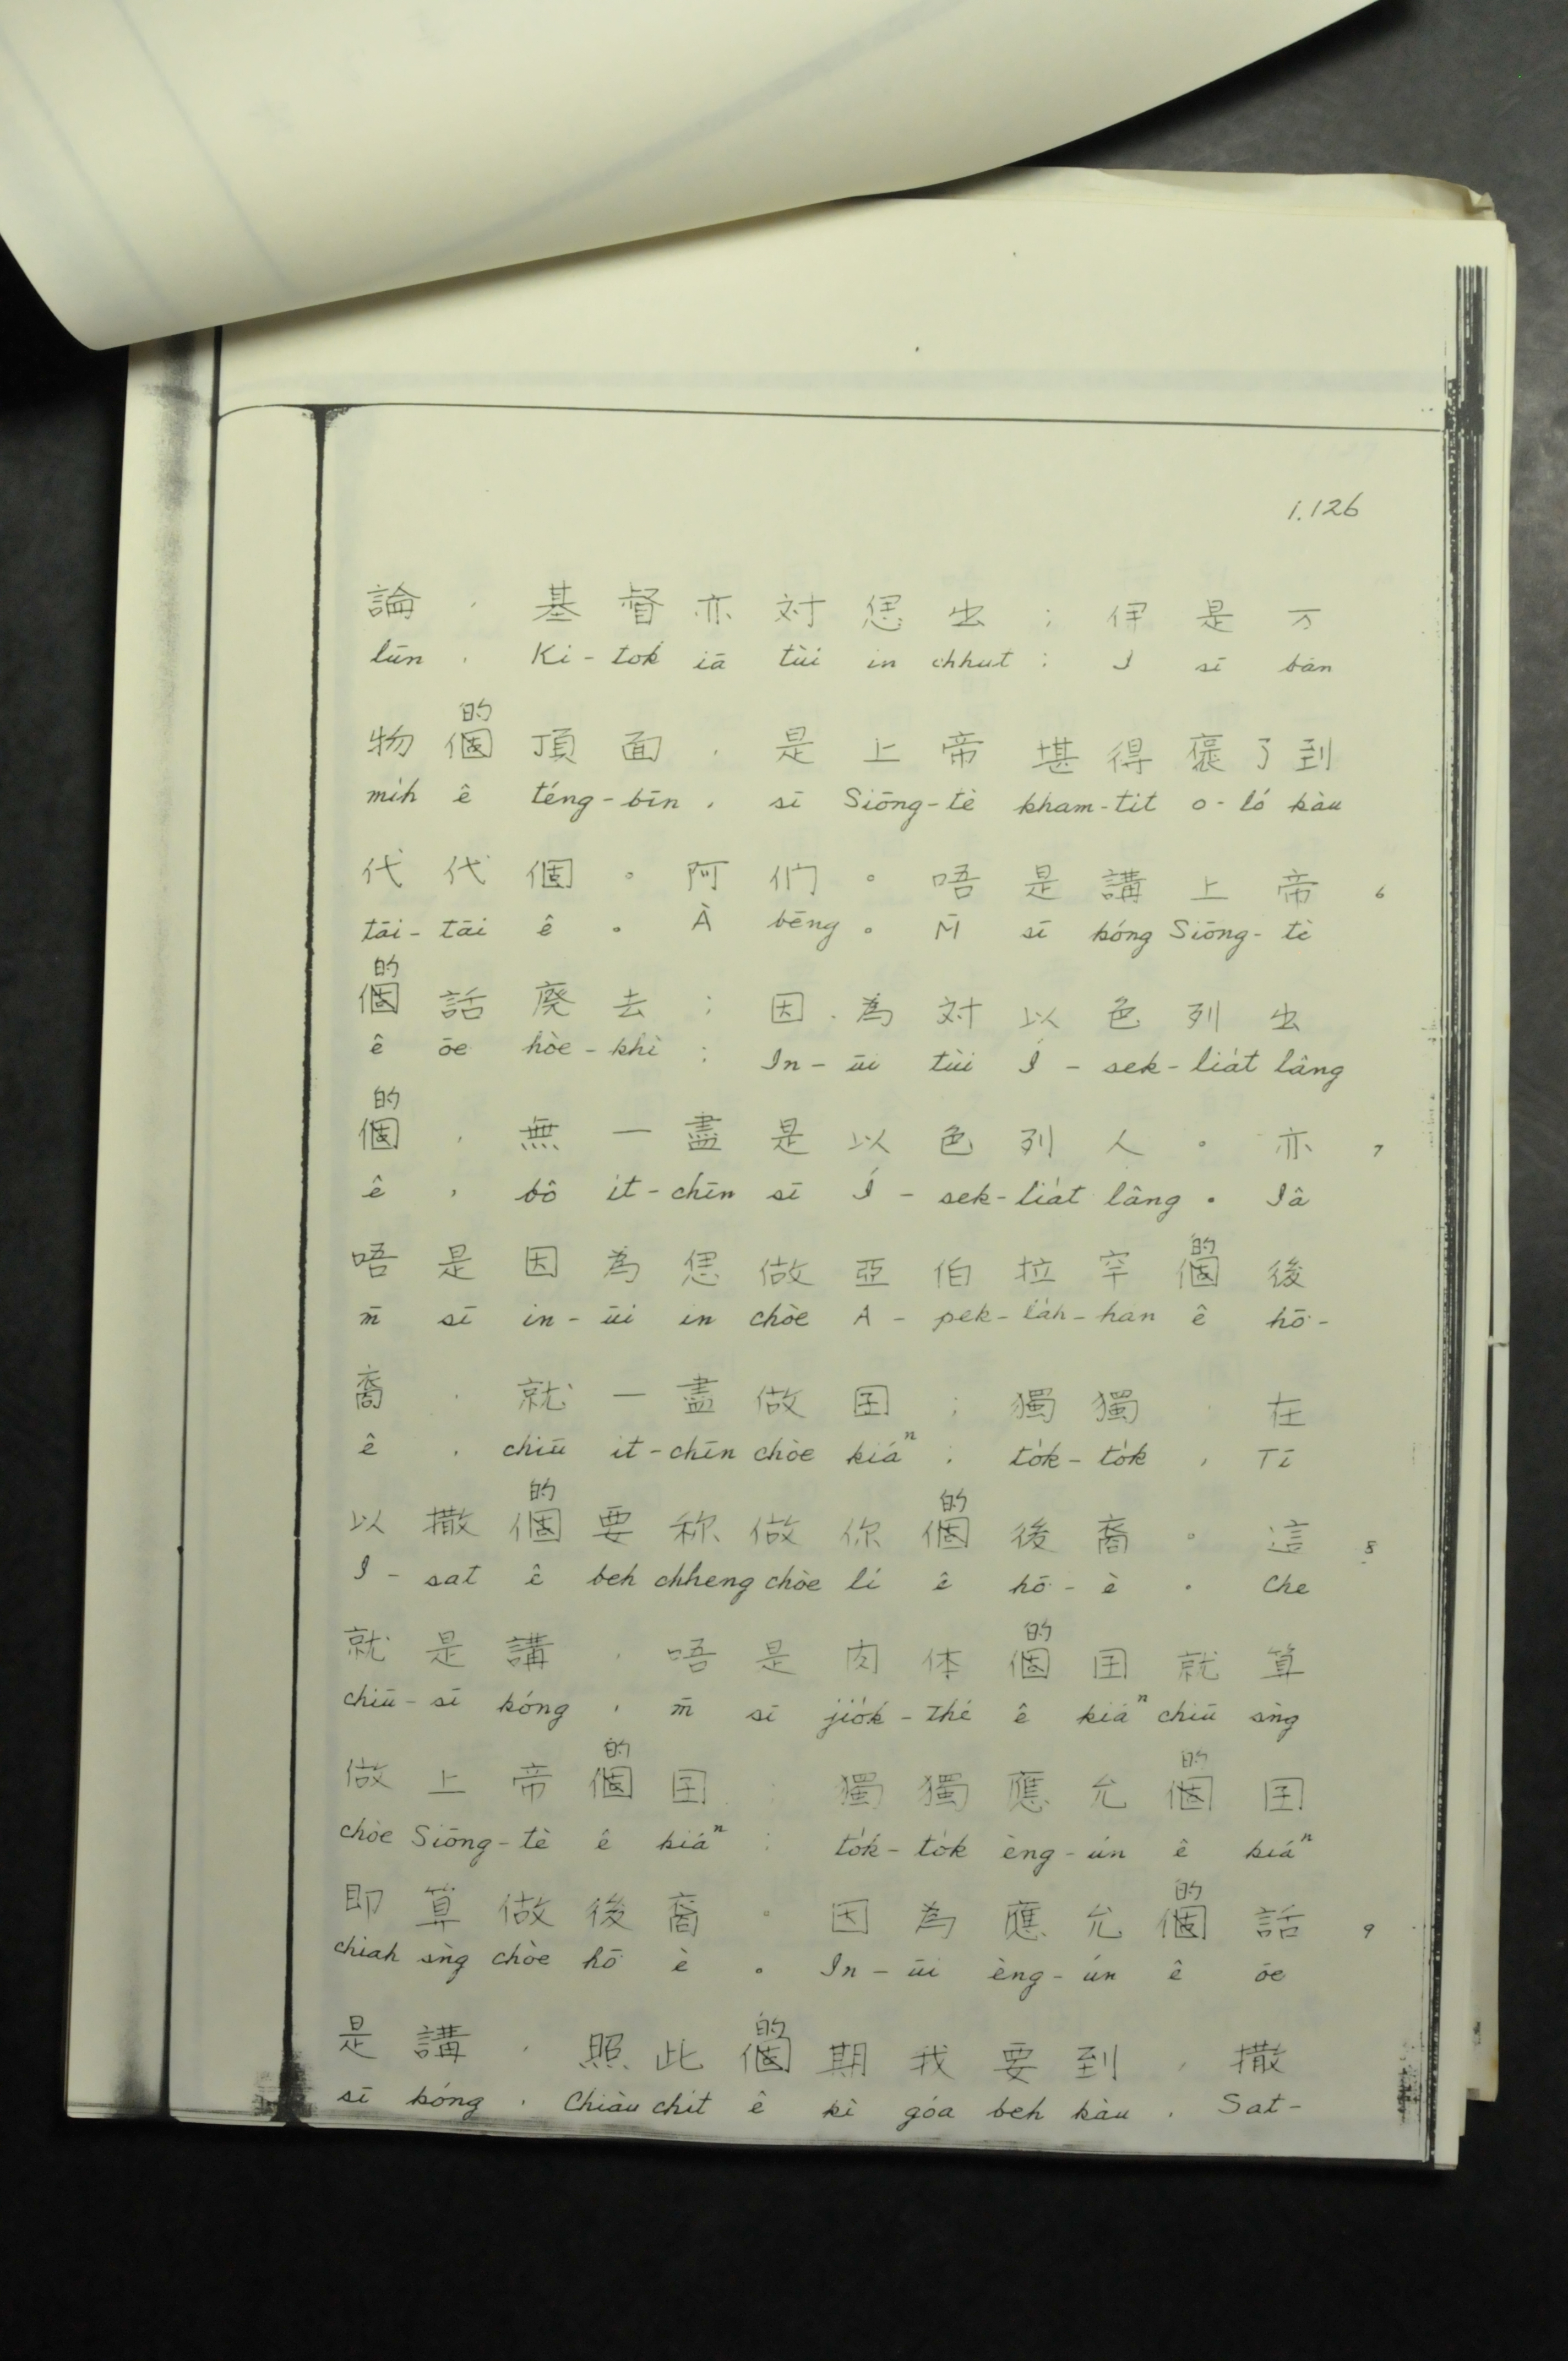 1.126
論 , 基 督 亦 対 偲 出 ; 伊 是 万
lūn , Ki-tok iā tùi in chhut ; I sī bān
的
物 個 頂 面 , 是 上 帝 堪 得 褒 了 到
mi̍h ê téng-bīn , sī Siōng-tè kham-tit o-ló kàu
代 代 個 。 阿 們 。 唔 是 講 上 帝 6
tāi-tāi ê 。 À bēng 。 M̄ sī kóng Siōng-tè
的
個 話 廃 去 ; 因 為 対 以 色 列 出
ê ōe hòe-khì ; In-ūi tùi Í-sek-lia̍t lâng
的
個 , 無 一 盡 是 以 色 列 人 。 亦 7
ê , bô it-chīn sī Í-sek-lia̍t lâng 。 Iâ
的
唔 是 因 為 偲 做 亞 伯 拉 罕 個 後
m̄ sī in-ūi in chòe A-pek-la̍h-han ê hō͘-
裔 , 就 一 盡 做 囝 ; 獨 獨 , 在
è , chiū it-chīn chòe kiáⁿ ; to̍k-to̍k , Tī
的 的
以 撒 個 要 称 做 你 個 後 裔 。 這 8
I-sat ê beh chheng chòe lí ê hō͘-è 。 Che
的
就 是 講 , 唔 是 肉 体 個 囝 就 算
chiū-sī kóng , m̄ sī jio̍k-thé ê kiáⁿ chiū sǹg
的 的
做 上 帝 個 囝 ; 獨 獨 應 允 個 囝
chòe Siōng-tè ê kiáⁿ ; to̍k-to̍k èng-ún ê kiáⁿ
的
即 算 做 後 裔 。 因 為 應 允 個 話 9
chiah sǹg chòe hō͘ è 。 In-ūi èng-ún ê ōe
的
是 講 , 照 此 個 期 我 要 到 , 撒
sī kóng , Chiàu chit ê kî góa beh kàu , Sat-